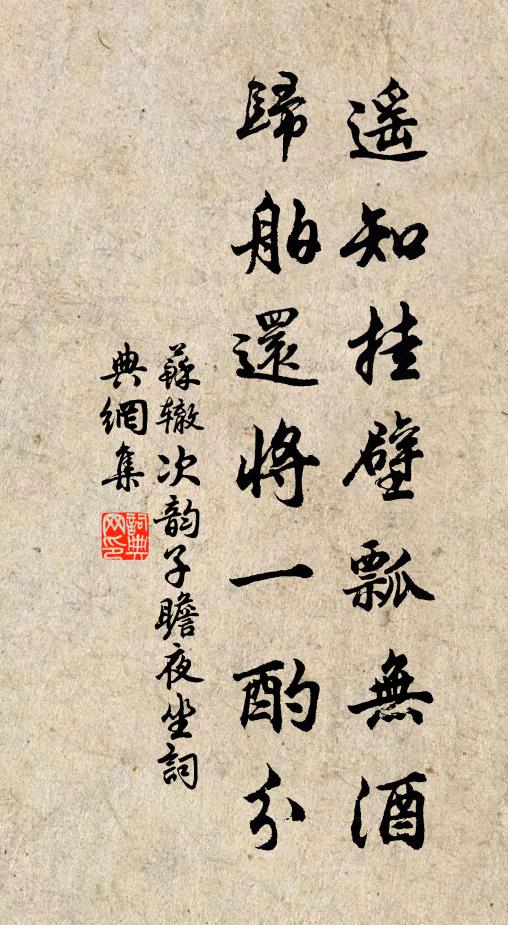 遥知挂壁瓢無酒
歸舶還將一酌分
蘇辙次韵子瞻夜坐詞
典網集
詞典网印